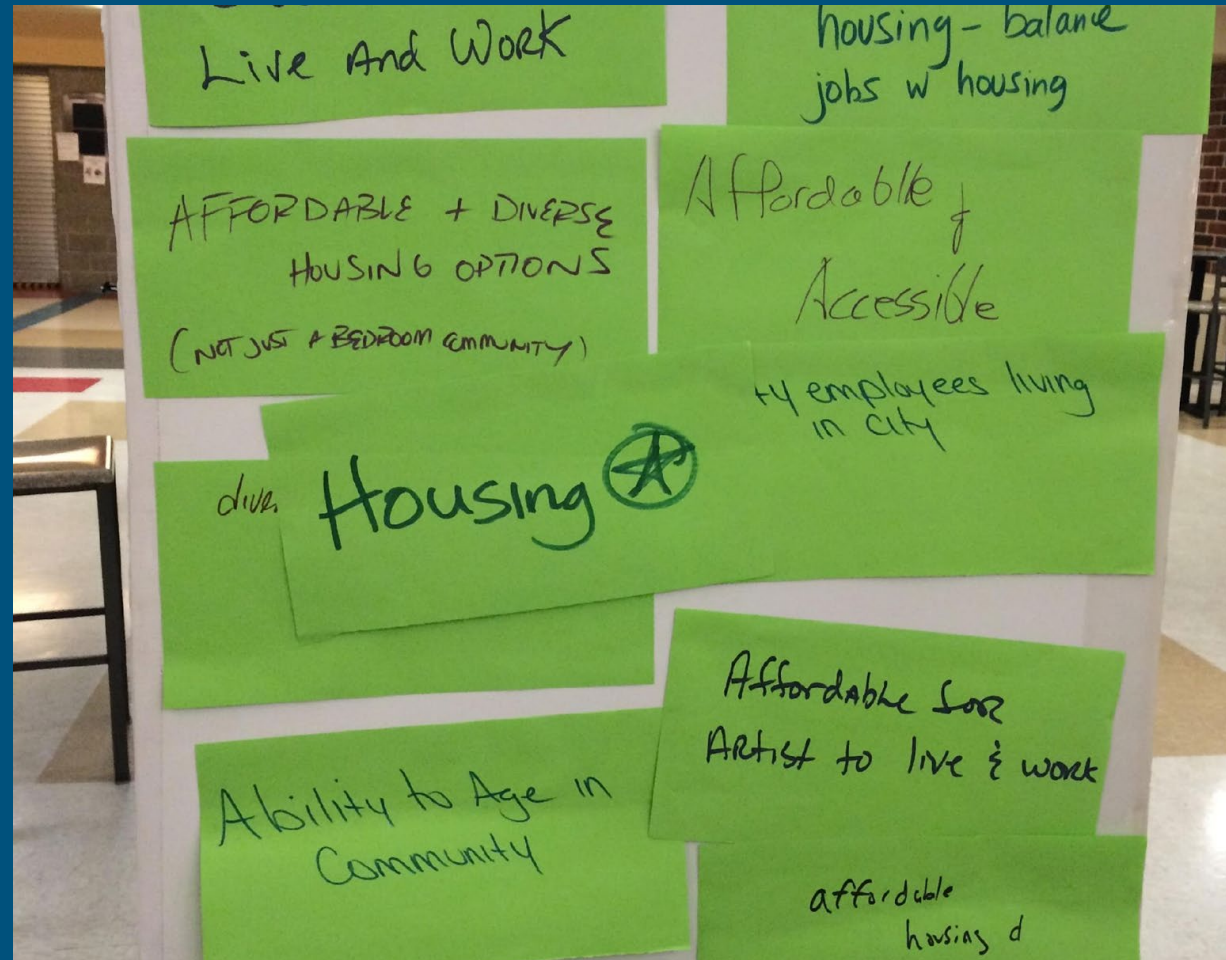 Live And Work
housing - balance
jobs w housing
AFFORDABLE + DIVERSE
HOUSING OPTIONS
(NOT JUST A BEDROOM COMMUNITY)
Affordable &
Accessible
employees living
in city
Housing
Affordable for
Artist to live & work
Ability to Age in
Community
affordable
housing d